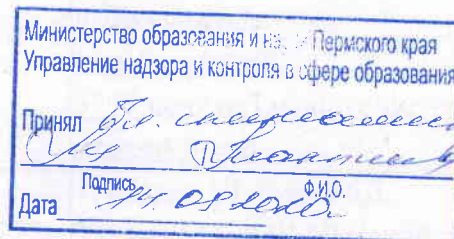 Министерство образования и на Пермского края
Управление надзора и контроля в сфере образования
Принял Гл. специалист
Подпись Ф.И.О.
Дата 14.09.2020г.